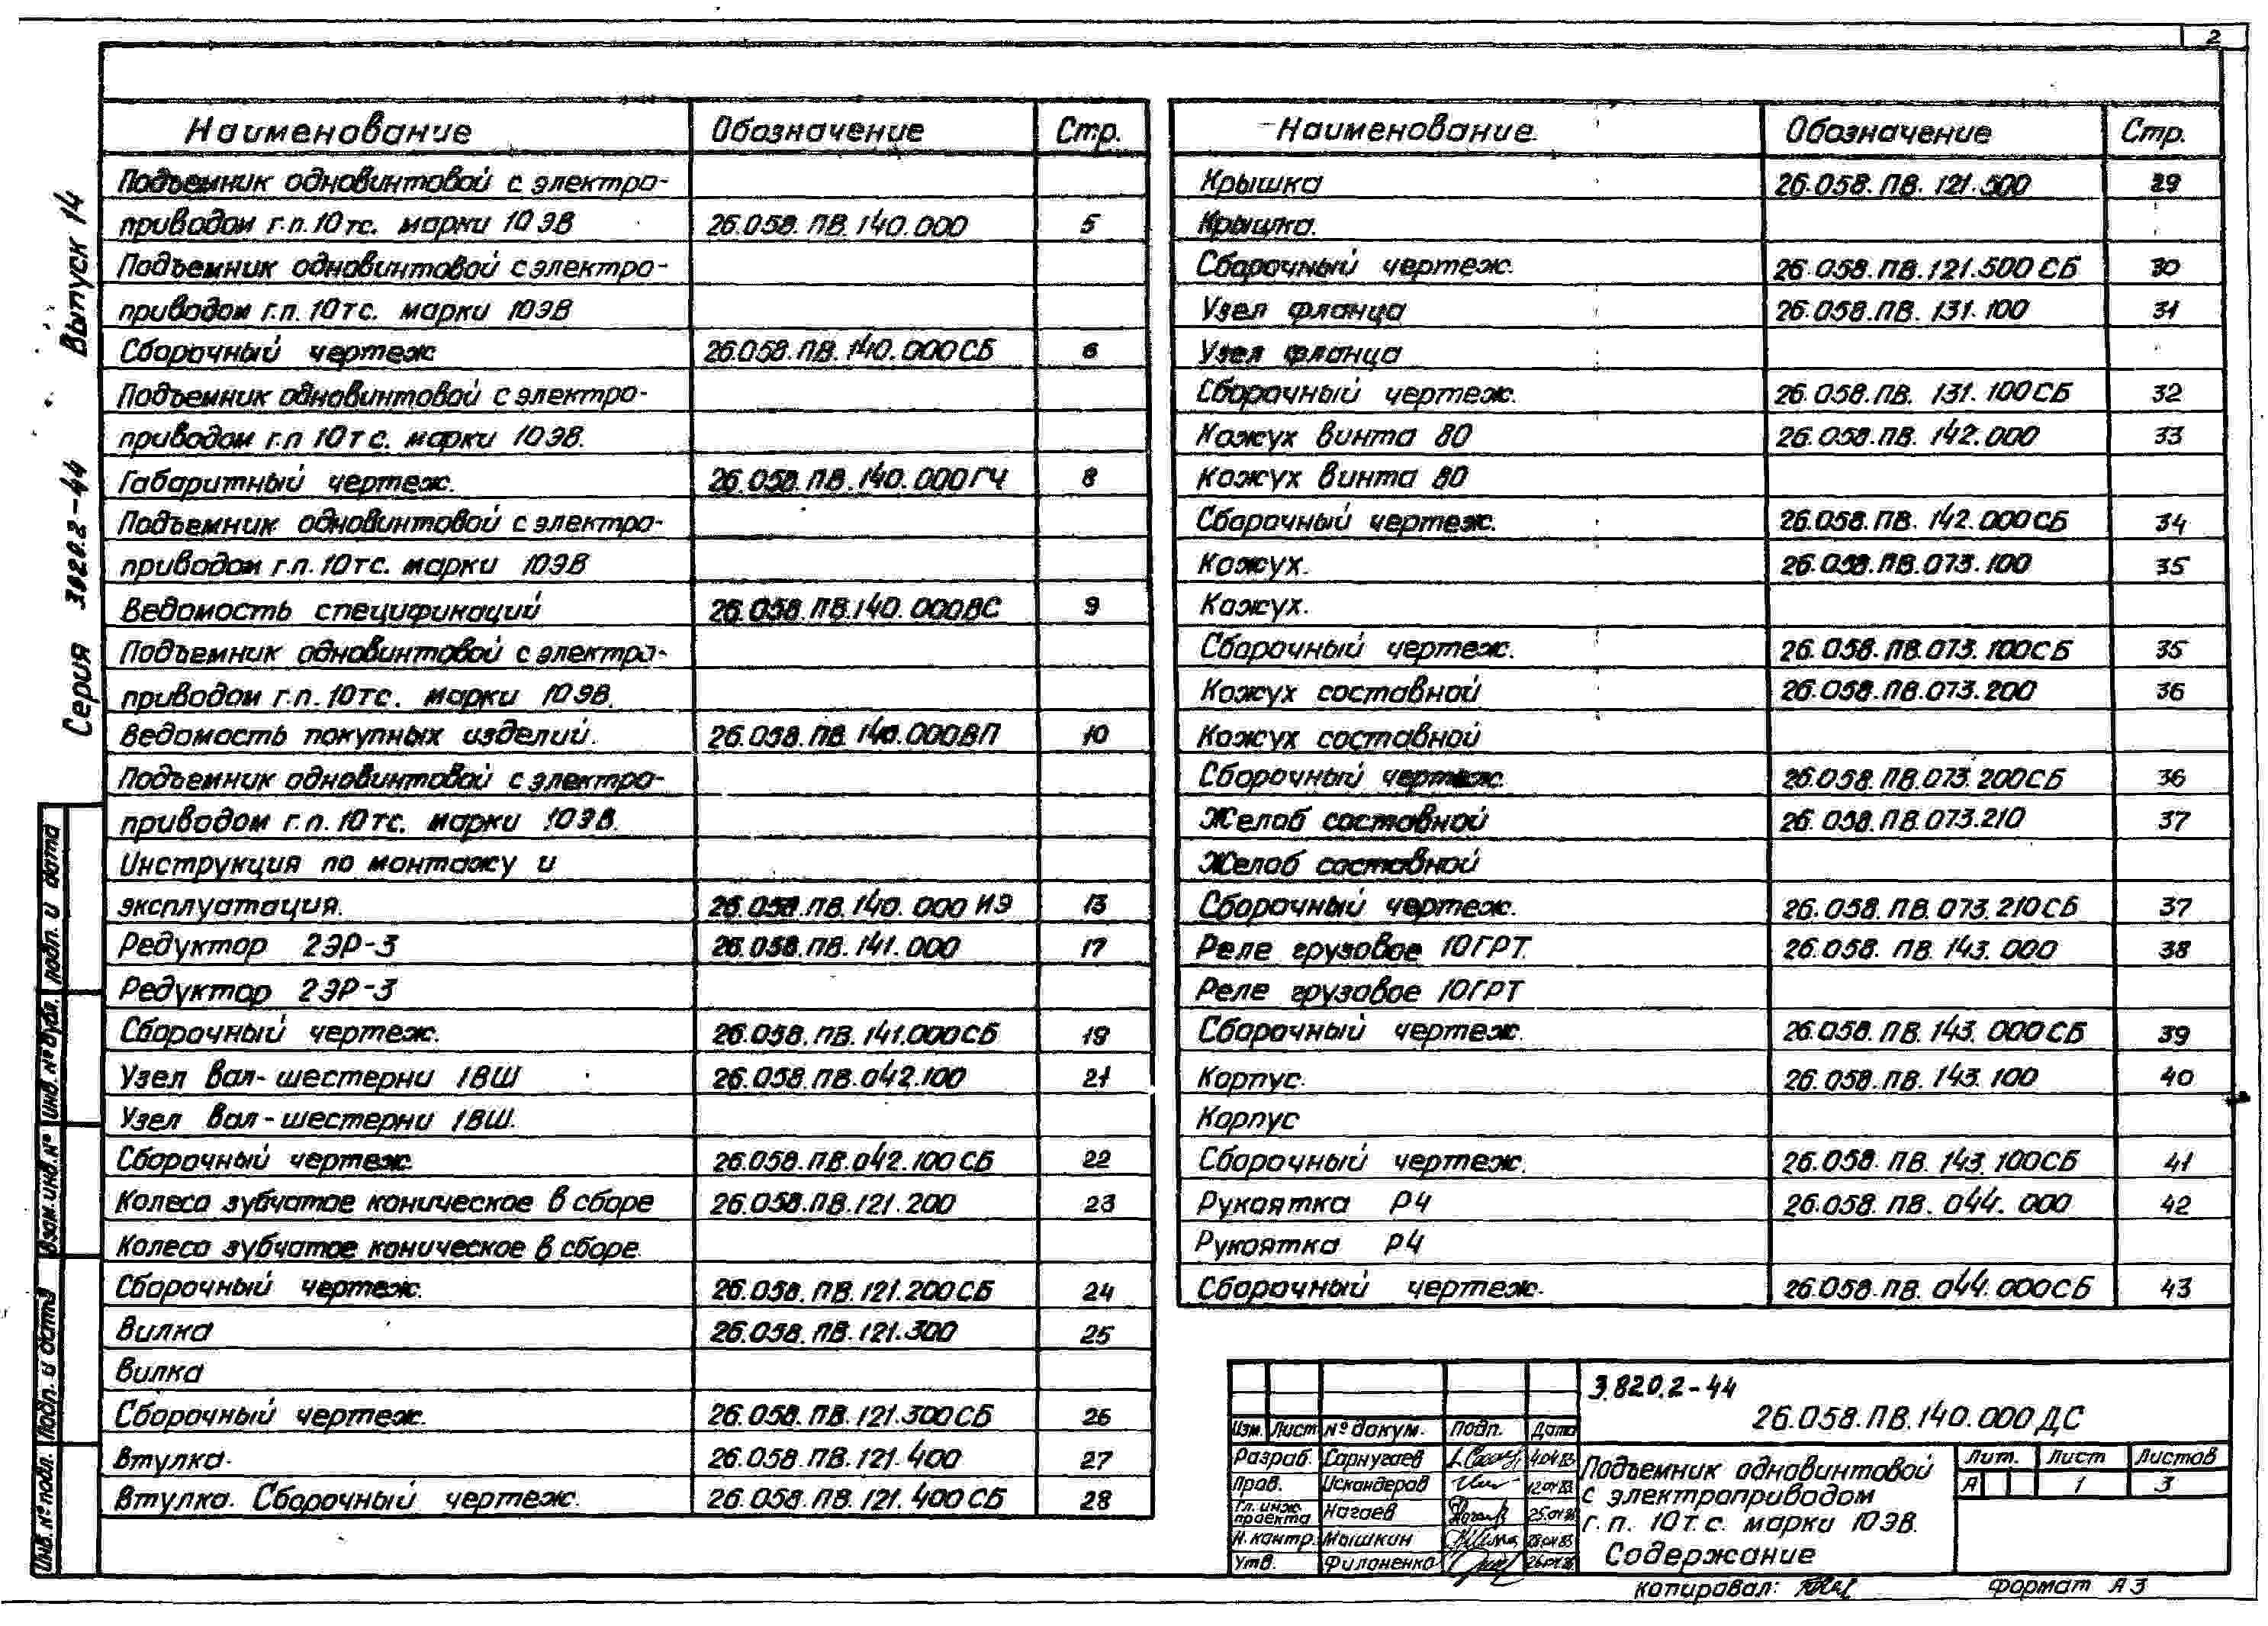 2
Серия 3.820.2-44 Выпуск 14
Наименование Обозначение Стр.
Подъемник одновинтовой с электро-
приводом г.п. 10 тс. марки 10ЭВ 26.058.ПВ.140.000 5
Подъемник одновинтовой с электро-
приводом г.п. 10тс. марки 10ЭВ
Сборочный чертеж 26.058.ПВ.140.000СБ 6
Подъемник одновинтовой с электро-
приводом г.п 10тс. марки 10ЭВ.
Габаритный чертеж. 26.058.ПВ.140.000ГЧ 8
Подъемник одновинтовой с электро-
приводом г.п. 10тс. марки 10ЭВ
Ведомость спецификаций 26.058.ПВ.140.000ВС 9
Подъемник одновинтовой с электро-
приводом г.п. 10тс. марки 10ЭВ.
Ведомость покупных изделий. 26.058.ПВ.140.000ВП 10
Подъемник одновинтовой с электро-
приводом г.п. 10тс. марки 10ЭВ.
Инструкция по монтажу и
эксплуатация. 26.058.ПВ.140.000ИЭ 13
Редуктор 2ЭР-3 26.058.ПВ.141.000 17
Редуктор 2ЭР-3
Сборочный чертеж. 26.058.ПВ.141.000СБ 19
Узел вал-шестерни 1ВШ 26.058.ПВ.042.100 21
Узел вал-шестерни 1ВШ.
Сборочный чертеж 26.058.ПВ.042.100СБ 22
Колесо зубчатое коническое в сборе 26.058.ПВ.121.200 23
Колесо зубчатое коническое в сборе.
Сборочный чертеж. 26.058.ПВ.121.200СБ 24
Вилка 26.058.ПВ.121.300 25
Вилка
Сборочный чертеж. 26.058.ПВ.121.300СБ 26
Втулка. 26.058.ПВ.121.400 27
Втулка. Сборочный чертеж. 26.058.ПВ.121.400СБ 28
Наименование. Обозначение Стр.
Крышка 26.058.ПВ.121.500 29
Крышка.
Сборочный чертеж. 26.058.ПВ.121.500СБ 30
Узел фланца 26.058.ПВ.131.100 31
Узел фланца
Сборочный чертеж. 26.058.ПВ.131.100СБ 32
Кожух винта 80 26.058.ПВ.142.000 33
Кожух винта 80
Сборочный чертеж. 26.058.ПВ.142.000СБ 34
Кожух. 26.058.ПВ.073.100 35
Кожух.
Сборочный чертеж. 26.058.ПВ.073.100СБ 35
Кожух составной 26.058.ПВ.073.200 36
Кожух составной
Сборочный чертеж. 26.058.ПВ.073.200СБ 36
Желоб составной 26.058.ПВ.073.210 37
Желоб составной
Сборочный чертеж. 26.058.ПВ.073.210СБ 37
Реле грузовое 10ГРТ. 26.058.ПВ.143.000 38
Реле грузовое 10ГРТ
Сборочный чертеж. 26.058.ПВ.143.000СБ 39
Корпус. 26.058.ПВ.143.100 40
Корпус
Сборочный чертеж. 26.058.ПВ.143.100СБ 41
Рукоятка Р4 26.058.ПВ.044.000 42
Рукоятка Р4
Сборочный чертеж. 26.058.ПВ.044.000СБ 43
Инв. № подл. Подп. и дата Взам. инв. № Инв. № дубл. подп. и дата
3.820.2-44
26.058.ПВ.140.000ДС
Изм. Лист № докум. Подп. Дата
Разраб. Сарнугаев
Пров. Искандеров
Гл. инж. проекта Нагаев
Н. контр. Мышкин
Утв. Филоненко
Подъемник одновинтовой
с электроприводом
г.п. 10т.с. марки 10ЭВ.
Содержание
Лит. Лист Листов
А 1 3
копировал:
Формат А3